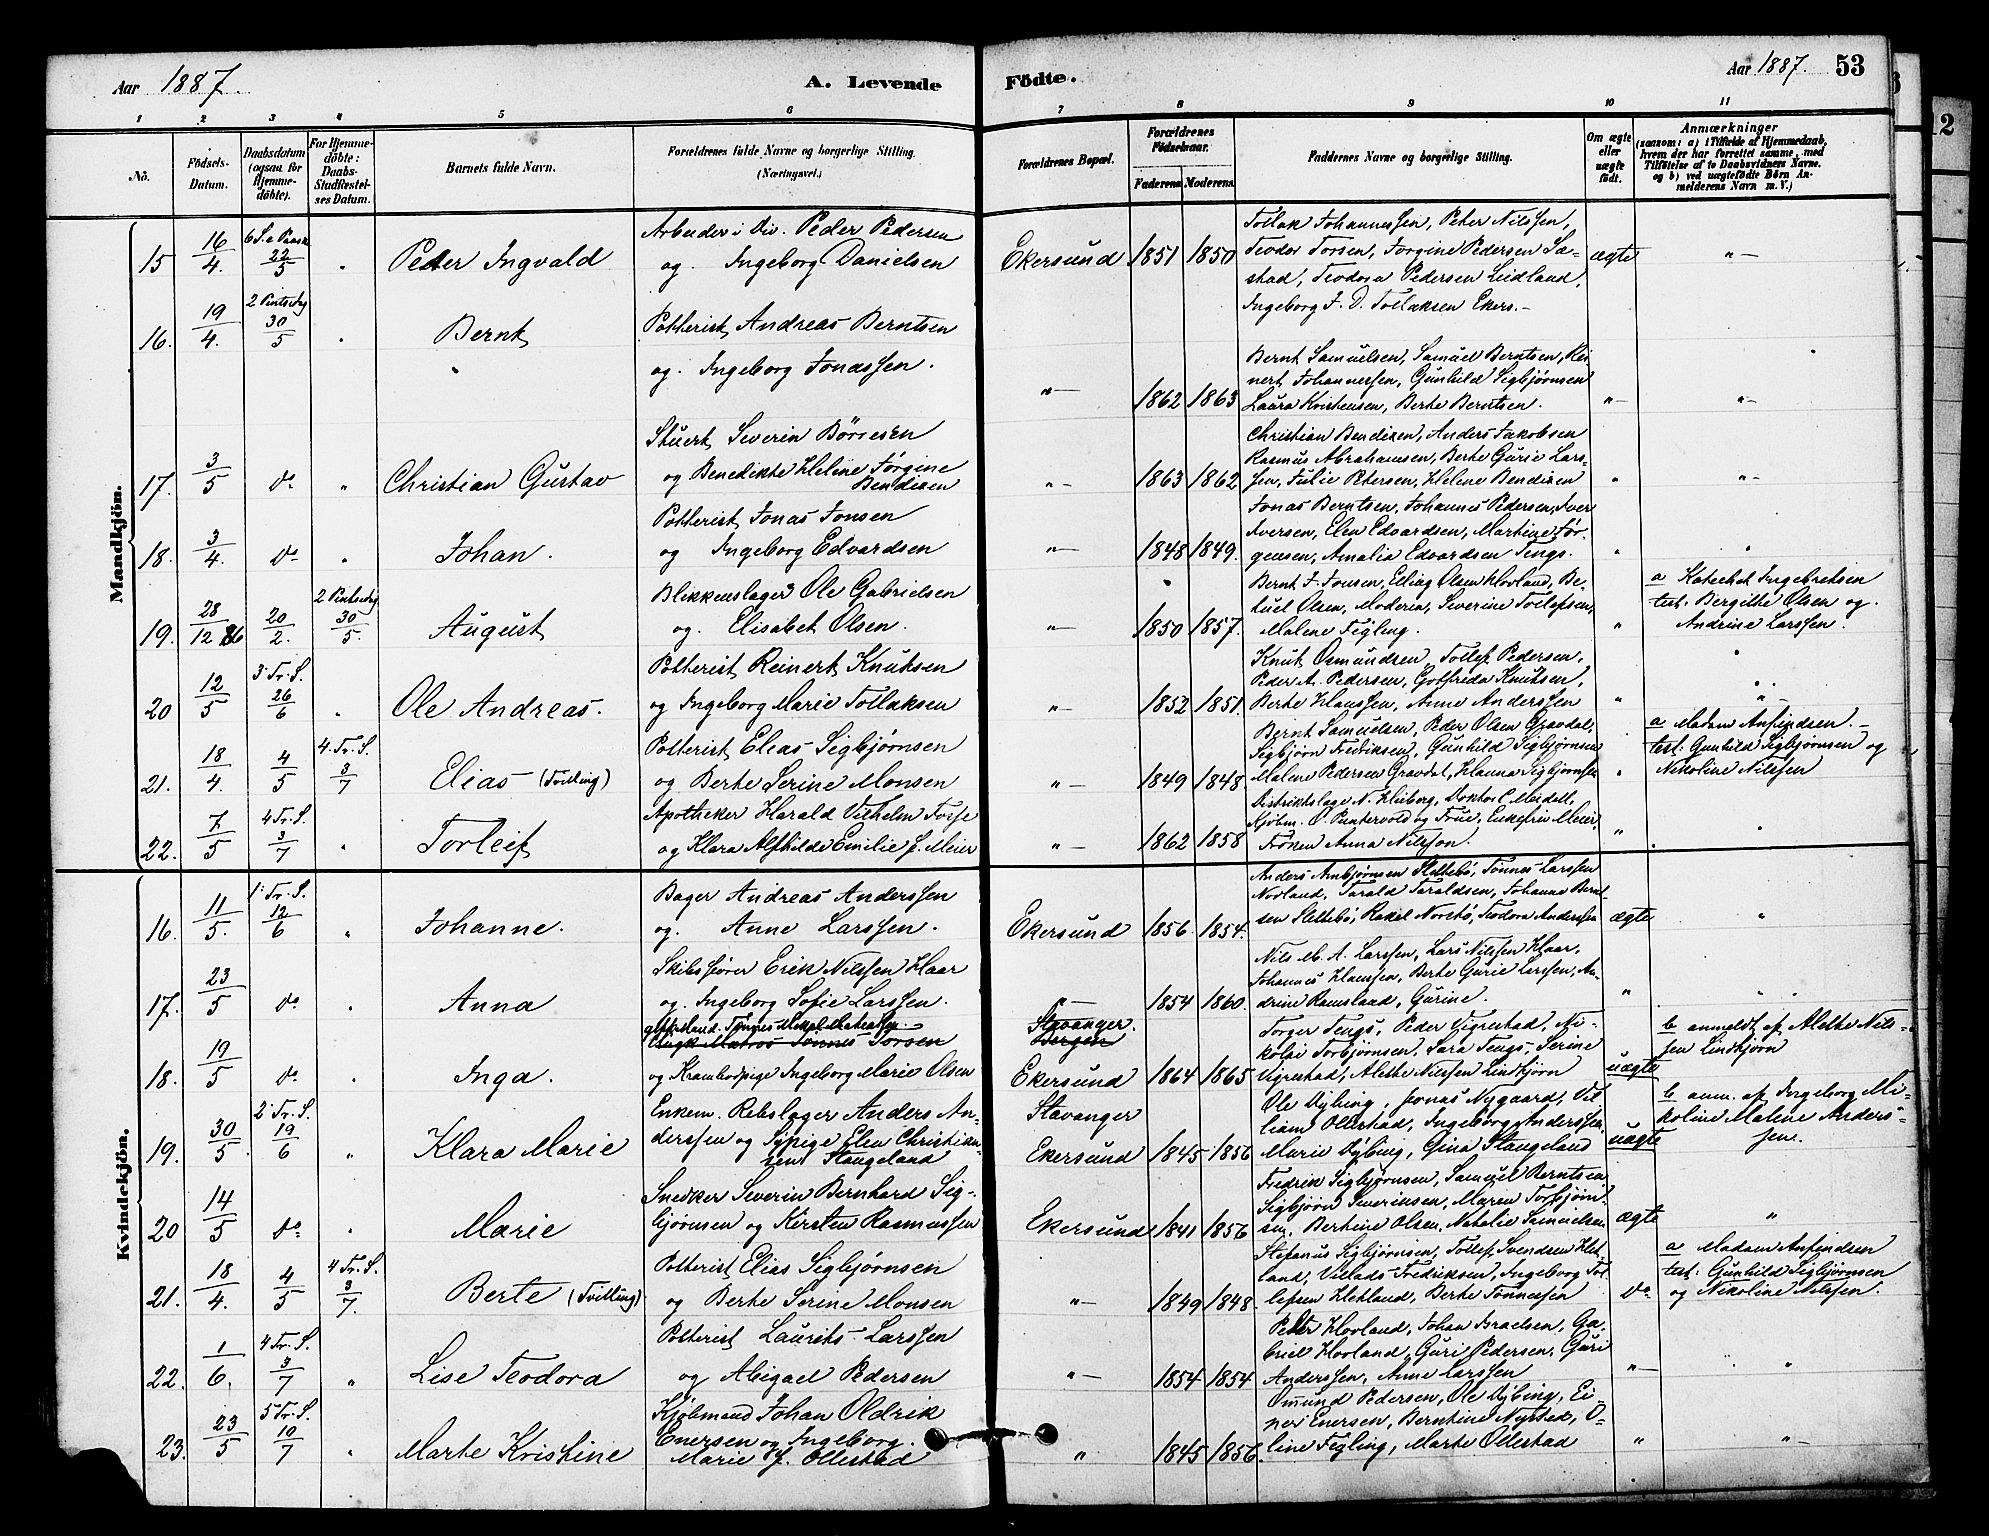 Aar 1887.
A. Levende
Födte.
Aar 1887. 53
1 2 3 4 5 6 7 8 9 10 11
No.
Födsels-Datum.
Daabsdatum (ogsaa for Hjemmedöbte).
For Hjemmedöbte: Daabs-Stadfæstelses Datum.
Barnets fulde Navn.
Forældrenes fulde Navne og borgerlige Stilling. (Næringsvei.)
Forældrenes Bopæl.
Forældrenes Födselsaar.
Faderens. Moderens.
Faddernes Navne og borgerlige Stilling.
Om ægte eller uægte födt.
Anmærkninger
(saasom: a) i Tilfælde af Hjemmedaab,
hvem der har forrettet samme, med
Tilföielse af to Daabsvidners Navne.
og b) ved uægtefödte Börn An-
melderens Navn m. V.)
Mandkjön.
15 16/4. 6 S. e Paask 22/5 " Peder Ingvald
Arbeider i Div. Peder Pedersen
og Ingeborg Danielsen
Ekersund 1851 1850
Tollak Johannessen, Peter Nilssen,
Teodor Torsen, Jorgine Pedersen Sæ-
stad, Teodora Pedersen Leidland,
Ingeborg J. D. Tollaksen Ekers.-
ægte "-
16. 19/4. 2 Pintsedg 30/5 " Bernt
Potterist Andreas Berntsen
og. Ingeborg Jonassen.
"- 1862 1863
Bernt Samuelsen, Samuel Berntsen, Rei-
nert Johannessen, Gunhild Sigbjørnsen
Laura Kristensen, Berte Berntsen.
"- "-
17. 3/5 do " Christian Gustav
Stuert Severin Börresen
og Benedikte Helene Jørgine
Bendixen
"- 1863 1862
Christian Bendixen, Anders Jakobsen
Rasmus Abrahamsen, Berte Gurie Lars-
sen, Julie Petersen, Helene Bendixen
" "-
18. 3/4. do " Johan.
Potterist Jonas Jonsen
og Ingeborg Edvardsen
"- 1848 1849.
Jonas Berntsen, Johannes Pedersen, Iver
Iversen, Elen Edvardsen, Martine Jør-
gensen, Amalia Edvardsen Tengs.
" "
19. 28/12 86 20/2. 2 Pintsedg 30/5. August
Blikkenslager Ole Gabrielsen
og. Elisabet Olsen.
"- 1850 1857.
Bernt J. Jonsen, Elling Olsen Hovland, Be-
tuel Olsen, Moderen, Severine Tollefsen,
Malene Fegling.
"
a Katechet Ingebretsen
test: Bergithe Olsen og.
Andrine Larssen.
20 12/5 3. Tr. S. 26/6 " Ole Andreas.
Potterist Reinert Knutsen
og Ingeborg Marie Tollaksen
"- 1852 1851.
Knut Osmundsen, Tollef Pedersen,
Peder A. Pedersen, Gotfrida Knutsen,
Berte Hanssen, Anne Anderssen
" "-
21. 18/4. 4/5 4. Tr. S. 3/7 Elias (Tvilling)
Potterist Elias Sigbjørnsen
og Berte Serine Monsen
"- 1849 1848.
Bernt Samuelsen, Peder Olsen Gravdal,
Sigbjørn Fredriksen, Gunhild Sigbjørnsen
Malene Pedersen Gravdal, Hanna Sigbjørnsen
"
a Madam Anfindsen.-
test: Gunhild Sigbjørnsen og
Nikoline Nilssen
22. 7/5 4 Tr. S. 3/7 " Torleif
Apotheker Harald Vilhelm Torse
og Klara Alfhilde Emilie f. Meier
"- 1862 1858
Distriktslæge N. Heiberg, Doktor C Meidell,
Kjøbm. O. Puntervold og Frue, Enkefru Meier,
Frøken Anna Nilsson.
" "
Kvindekjön.
16. 11/5. 1. Tr. S. 12/6 " Johanne.
Bager Andreas Anderssen
og. Anne Larssen.
Ekersund 1856. 1854.
Anders Anbjørnsen Slettebø, Tønnes Larssen
Nodland, Tarald Taraldsen, Johanne Bernt-
sen Slettebø, Rakel Norebø, Teodora Anderssen
ægte "
17. 23/5 do " Anna
Skibsfører Erik Nilssen Haar
og. Ingeborg Sofie Larssen.
"- 1854 1860.
Nils M. A. Larssen, Lars Nilssen Haar,
Johannes Hanssen, Berte Gurie Larssen, An-
drine Ramsland, Gurine.
" "
18. 19/5 do " Inga.
Tønnes
Ungk. Matros Tønnes Torsen
og Krambodpige Ingeborg Marie Olsen
Stavanger.
Bergen
Ekersund 1864 1865
Torger Tengs, Peder Vigrestad, Ni-
kolai Torbjørnsen, Sara Tengs, Serine
Vigrestad, Alethe Nilssen Lindhjørn
uægte
b anmeldt af Alethe Nils-
sen Lindhjørn
19. 30/5. 2. Tr. S. 19/6 " Klara Marie
Enkem. Rebslager Anders An-
derssen og Sypige Elen Christian-
sen Stangeland
Stavanger
Ekersund 1845 1856
Ole Dybing, Jonas Nygaard, Vil-
liam Ollestad, Ingeborg Anderssen,
Marie Dybing, Gina Stangeland
uægte
b anm. af Ingeborg Mi-
koline Malene Anders-
sen.
20 14/5 do " Marie
Snedker Severin Bernhard Sig-
bjørnsen og Kirsten Rasmussen
Ekersund 1841 1856
Fredrik Sigbjørnsen, Samuel Berntsen
Sigbjørn Severinsen, Maren Torbjørn-
sen, Bertine Olsen, Natalie Samuelsen
ægte "
21. 18/4. 4/5 4 Tr. S. 3/7. Berte (Tvilling)
Potterist Elias Sigbjørnsen
og Berte Serine Monsen
"- 1849 1848.
Stefanus Sigbjørnsen, Tollef Svendsen Het-
land, Villads Fredriksen, Ingeborg Tol-
lefsen Hetland, Berte Tønnessen
do
a Madam Anfindsen
test: Gunhild Sigbjørnsen
og Nikoline Nilssen.
22. 1/6. 4 Tr. S. 3/7 " Lise Teodora
Potterist Laurits Larssen
og Abigael Pedersen
"- 1854 1854
Peder Hovland, Johan Israelsen, Ga-
briel Hovland, Guri Pedersen, Guri
Anderssen, Anne Larssen
"- "
23. 23/5 5 Tr. S. 10/7 " Marte Kristine
Kjøbmand Johan Oldrik
Enersen og Ingeborg
Marie f. Ollestad
" 1845 1856.
Omund Pedersen, Ole Dybing, Ei-
ner Enersen, Berntine Nysted, O-
line Fegling, Marte Ollestad
" "-